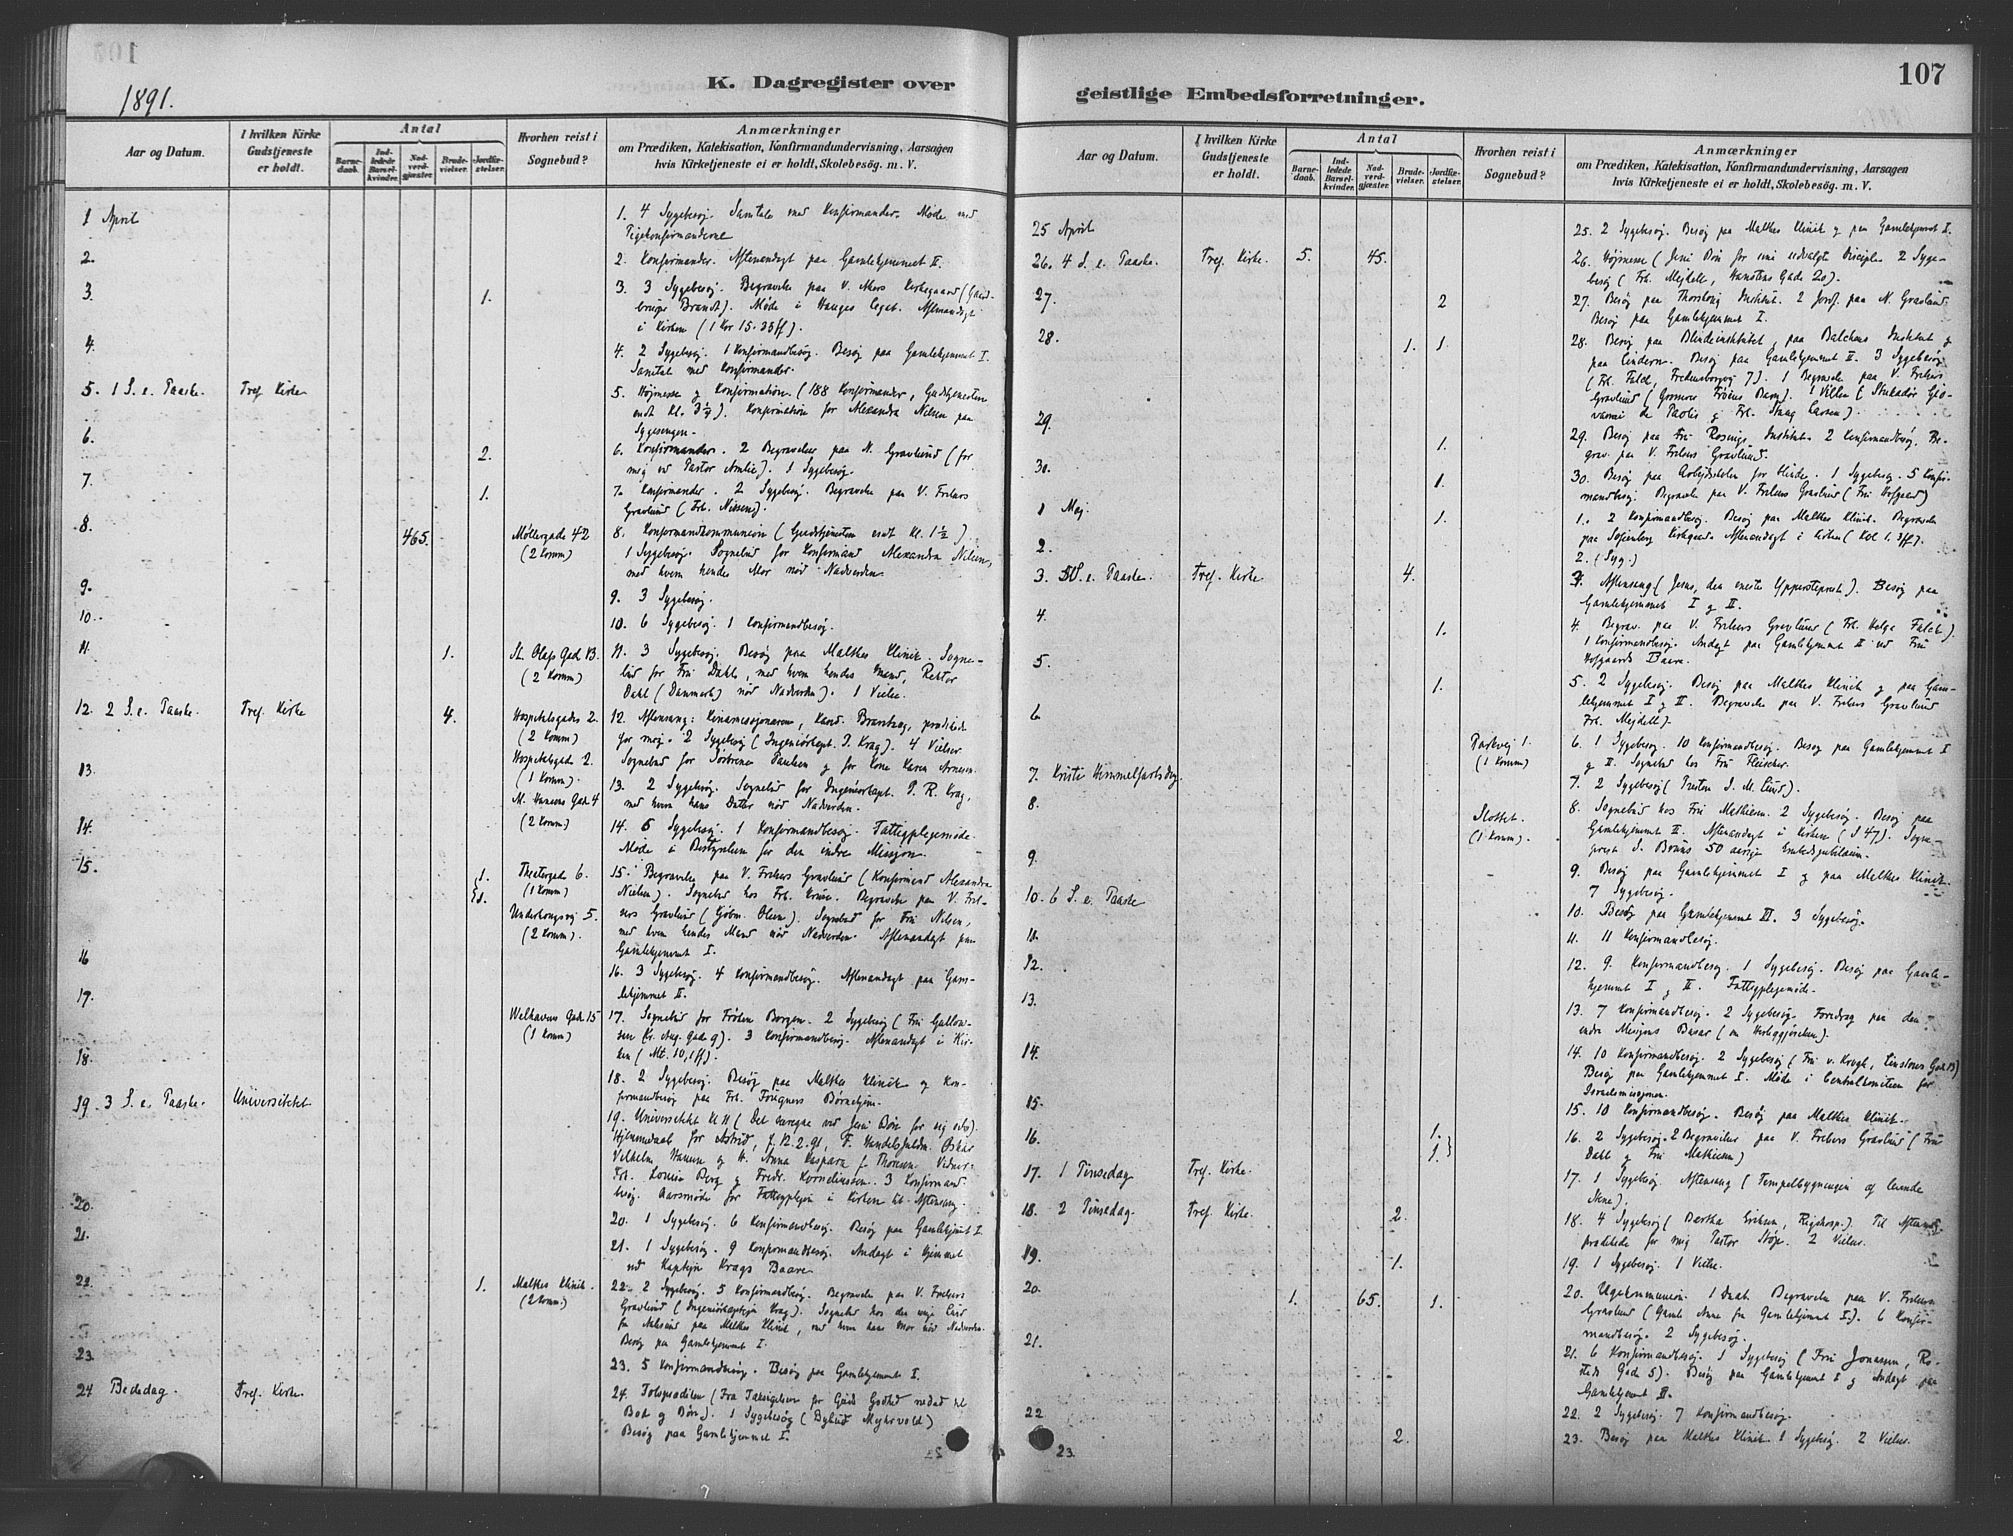 107
K. Dagregister over
geistlige Embedsforretninger.
1891.
Aar og Datum.
I hvilken Kirke Gudstjeneste er holdt.
Antal
Barnedaab.
Indledede Barselkvinder.
Nadverdgjæster.
Brudevielser.
Jordfæstelser.
Hvorhen reist i Sognebud?
Anmærkninger
om Prædiken, Katekisation, Konfirmandundervisning, Aarsagen
hvis Kirketjeneste ei er holdt, Skolebesög. m. V.
1 April
1. 4 Sygebesøg. Samtale med Konfirmander. Møde med
Pigekonfirmanderne
2.
2. Konfirmander. Aftenandagt paa Gamlehjemmet II.
3.
1.
3. 3 Sygebesøg. Begravelse paa V. Akers Kirkegaard
Brandt). Møde i Hauges legat. Aftenandagt
i Kirken (1 Kor 15.
4.
4. 2 Sygebesøg. 1 Konfirmandbesøg. Besøg paa Gamlehjemmet I.
Samtale med Konfirmander.
5. 1 S. e. Paaske.
Tref. Kirke
5. Højmesse og Konfirmation. (188 Konfirmander, Gudstjenesten
endt Kl. 3½). Konfirmation for Alexandra Nilsen paa
Sygesengen.
6.
2.
6. Konfirmander. 2 Begravelser paa N. Gravlund (for
mig ved Pastor Amlie). 1 Sygebesøg.
7.
1.
7. Konfirmander. 2 Sygebesøg. Begravelse paa V. Frelsers
Gravlund (Frk. Nissen).
8.
465.
Møllergade 42
(2 Komm)
8. Konfirmandkommunion (Gudstjenesten endt Kl. 1½)
1 Sygebesøg. Sognebud for Konfirmand Alexandra Nilsen,
med hvem hendes Mor nød Nadverden
9.
9. 3 Sygebesøg.
10.
10. 6 Sygebesøg. 1 Konfirmandbesøg.
11.
1.
St. Olafs Gade 13.
(2 Komm)
11. 3 Sygebesøg. Besøg paa Malthes Klinik. Sogne-
bud for Fru Dahl, med hvem hendes Mand, Rektor
Dahl (Danmark) nød Nadverden). 1 Vielse.
12. 2 S. e. Paaske.
Tref. Kirke
4.
Hospitalsgaden 2.
(2 Komm)
12. Aftensang: Kinamissjonæren, Kand. Brandtzæg, prædikede
for mig. 2 Sygebesøg (Ingeniørkapt. J. Krag). 4 Vielser
Hospitalsgade 2.
(1 Komm).
Sognebud for Paulsen og for Kone Karen Arnesen.
13.
M. Hansens Gade 4
(2 Komm.)
13. 2 Sygebesøg. Sognebud for Ingeniørkapt. P. R. Krag,
med hvem hans Datter nød Nadverden.
14.
14. 5 Sygebesøg. 1 Konfirmandbesøg. Fattigplejemøde.
Møde i Bestyrelsen for den indre Mission.
15.
1.
1.
Theatergade 6.
(1 Komm)
15. Begravelse paa V. Frelsers Gravlund (Konfirmand Alexandra
Nielsen). Sognebud hos Frk. Kruse. Begravelse paa V. Frel-
Underhaugsvej 5.
(2 Komm).
sers Gravlund (Gjøbm. Olsen). Sognebud for Fru Nilsen,
med hvem hendes Mand nød Nadverden. Aftenandagt paa
Gamlehjemmet I.
16
16. 3 Sygebesøg. 4 Konfirmandbesøg. Aftenandagt paa Gam-
lehjemmet II.
17.
Welhavens Gade 15
(1 Komm)
17. Sognebud for Frøken Borgen. 2 Sygebesøg (Fru Gulow-
sen Kr. Aug. Gade 9). 3 Konfirmandbesøg. Aftenandagt i Kir-
ken (Mt. 10,1ff).
18.
18. 2 Sygebesøg. Besøg paa Malthes Klinik og Kon-
firmandbesøg paa Frk. Børnehjem.
19. 3 S. e. Paaske.
Universitetet
19. Universitetet Kl 11 (Det vaagne ved Jesu Bøn for sig selv).
Hjemmedaab for Astrid, f. 12.2.91, F. Handelsfuldm. Oskar
Vilhelm Hansen og H. Anna Kaspara f. Thoresen. Vidner
Frk. Louise Berg og Fredr. Kornelinssen. 3 Konfirmand-
besøg. Aarsmøde for Fattigplejen i Kirken til Aftensang
20.
20. 1 Sygebesøg. 6 Konfirmandbesøg. Besøg paa Gamlehjemmet I
21.
21. 1 Sygebesøg. 9 Konfirmandbesøg. Andagt i Hjemmet
ved Kaptejn Krags Baare
22.
1.
Malthes Klinik.
(2 Komm.)
22. 2 Sygebesøg. 5 Konfirmandbesøg. Begravelse paa V. Frelsers
Gravlund (Ingeniørkaptejn Krag). Sognebud hos den unge
fra paa Malthes Klinik, med hvem hans Mor nød Nadverden.
Besøg paa Gamlehjemmet I.
23.
23. 5 Konfirmandbesøg. Besøg paa Gamlehjemmet I.
24 Bededag.
Tref. Kirke.
24. Totoprædiken (Fra Taksigelsen for Guds Godhed nedad til
Bod og Bøn). 1 Sygebesøg (Myhrvold)
Besøg paa Gamlehjemmet I.
Aar og Datum.
I hvilken Kirke Gudstjeneste er holdt.
Antal
Barnedaab.
Indledede Barselkvinder.
Nadverdgjæster.
Brudevielser.
Jordfæstelser.
Hvorhen reist i Sognebud?
Anmærkninger
om Prædiken, Katekisation, Konfirmandundervisning, Aarsagen
hvis Kirketjeneste ei er holdt, Skolebesög. m. V.
25 April
25. 2 Sygebesøg. Besøg paa Malthes Klinik og paa Gamlehjemmet I.
26. 4 S. e. Paaske.
Tref. Kirke.
5.
45.
26. Højmesse (Jesu Bøn for sine udvalgte Disciple. 2 Syge-
besøg (Frk. Mejdell, Gade 20).
27.
2
27. Besøg paa Institut. 2 Jordf. paa N. Gravlund.
Besøg paa Gamlehjemmet I.
28.
1.
1.
28. Besøg paa Blindeinstitutet, paa Balchens Institut og
paa Lindern. Besøg paa Gamlehjemmet II. 3 Sygebesøg
(Frk. Falck, Fredensborgvej 7). 1 Begravelse paa V. Frelsers
Gravlund (Barn). 1 Vielse (Stukadør Gio-
vanni de Paolis og Frk. Larsen).
29.
1.
29. Besøg paa Fru Rosings Institut. 2 Konfirmandbesøg. Be-
grav. paa V. Frelsers Gravlund.
30.
1.
30. Besøg paa Arbejdsskolen for Blinde. 1 Sygebesøg. 5 Konfir-
mandbesøg. Begravelse paa V. Frelsers Gravlund (Fru Hofgaard)
1 Maj.
1.
1. 2 Konfirmandbesøg. Besøg paa Malthes Klinik. Begravelse
paa Sofienberg Kirkegaard. Aftenandagt i Kirken (Kol 1. 3ff).
2.
2. (Syg.)
3. 5 S. e. Paaske.
Tref. Kirke
4.
3. Aftensang (Jesus, den eneste Ypperstepræst). Besøg paa
Gamlehjemmet I og II.
4.
1.
4. Begrav. paa V. Frelsers Gravlund (Frk. Helga Falck).
1 Konfirmandbesøg. Andagt paa Gamlehjemmet II ved Fru
Hofgaards Baare.
5.
1.
5. 2 Sygebesøg. Besøg paa Malthes Klinik og paa Gam-
lehjemmet I og II. Begravelse paa V. Frelsers Gravlund
Frk. Mejdell).
6
Parkvej 1.
(1 Komm)
6. 1 Sygebesøg. 10 Konfirmandbesøg. Besøg paa Gamlehjemmet I
og II. Sognebud hos Fru Fleischer.
7. Kristi Himmelfartsdag.
7. 2 Sygebesøg (Presten J. M. Lund).
8.
Slottet.
(1 Komm)
8. Sognebud hos Fru Mathiesen. 2 Sygebesøg. Besøg paa
Gamlehjemmet II. Aftenandagt i Kirken (S 47). Sogne-
prest S. Bruuns 50 aarige Embedsjubilæum.
9.
9. Besøg paa Gamlehjemmet I og paa Malthes Klinik.
7 Sygebesøg.
10. 6 S. e. Paaske
10. Besøg paa Gamlehjemmet II. 3 Sygebesøg.
11.
11. 11 Konfirmandbesøg.
12.
12. 9. Konfirmandbesøg. 1 Sygebesøg. Besøg paa Gamle-
hjemmet I og II. Fattigplejemøde.
13.
13. 7 Konfirmandbesøg. 2 Sygebesøg. Foredrag paa den
indre Misjons Basar (om Helliggjørelsen).
14.
14. 10 Konfirmandbesøg. 2 Sygebesøg (Fru v. Krogh, Linstows Gade 13)
Besøg paa Gamlehjemmet I. Møde i Centralkomiteen for
Israelsmissjonen.
15.
15. 10 Konfirmandbesøg. Besøg paa Malthes Klinik.
16.
1.
1.
16. 2 Sygebesøg. 2 Begravelser paa V. Frelsers Gravlund (Fru
Dahl og Fru Mathiesen)
17. 1 Pinsedag
Tref. Kirke.
17. 1 Sygebesøg. Aftensang (Tempelbygningen af levende
Stene).
18. 2 Pinsedag.
Tref. Kirke.
2.
18. 4 Sygebesøg (Bertha Eriksen, Rigshosp.). Til Aftensang
prædikede for mig Pastor Støje. 2 Vielser.
19.
1.
19. 1 Sygebesøg. 1 Vielse.
20.
1.
65.
1.
20. Ugekommunion. 1 Daab. Begravelse paa V. Frelsers
Gravlund (Gamle Anne fra Gamlehjemmet I). 6 Konfir-
mandbesøg. 2 Sygebesøg.
21.
21. 6 Konfirmandbesøg. 1 Sygebesøg (Fru Jonassen, Ro-
steds Gade 5). Besøg paa Gamlehjemmet I og Andagt paa
Gamlehjemmet II.
22
22. 2 Sygebesøg. 7 Konfirmandbesøg.
23.
2.
23. Besøg paa Malthes Klinik. 1 Sygebesøg. 2 Vielser.